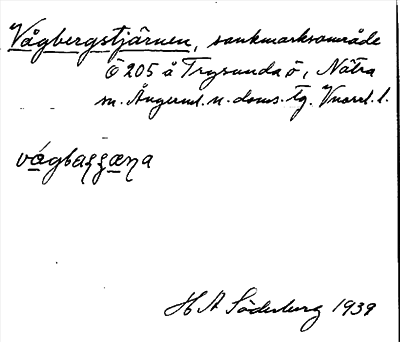 Vågbergstjärnen, sankmarksområde
Ö 205 å Trysunda ö, Nätra
sn. Ångerml. n. doms. tg. Vnorrl. l.
HA Söderberg 1939